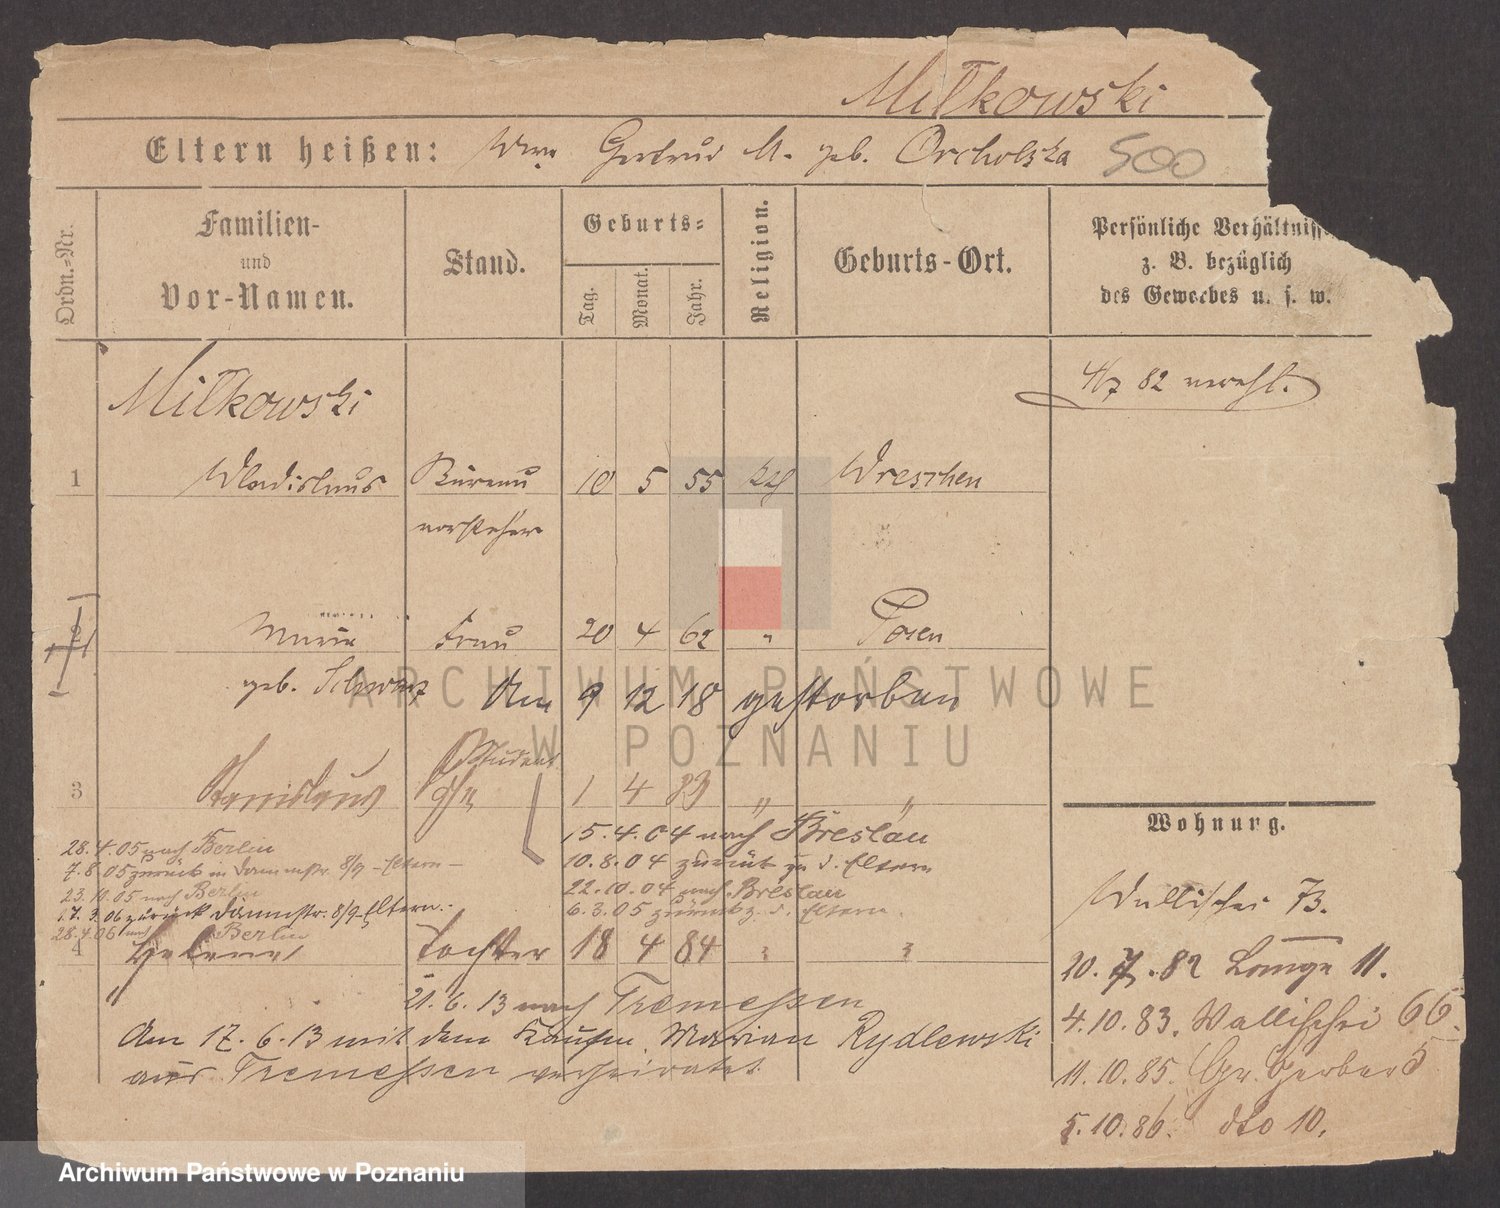 Milkowski
Eltern heißen: Wwe Gertrud M. geb. Orcholska 500
Ordn.-Nr.
Familien-
und
Vor-Namen.
Stand.
Geburts-
Tag.
Monat.
Jahr.
Religion.
Geburts-Ort.
Persönliche Verhältniss
z. B. bezüglich
des Gewerbes u. s. w.
Milkowski
4/7 82 verehl.
1 Wladislaus Büreau 10 5 55 kth Wreschen
vorsteher
2 Maria Frau 20 4 62 " Posen
geb. Schwarz Am 9 12 18 gestorben
Student
3 Stanislaus 1 4 83 " "
15.4.04 nach Breslau
10.8.04 zurück zu d. Eltern
22.10.04 nach Breslau
6.3.05 zurück z. d. Eltern.
28.4.05 nach Berlin
7.8.05 zurück 8/9 - Eltern -
23.10.05 nach Berlin
17.3.06 zurück 8/9 Eltern.
28.4.06 nach Berlin
4 Helene Tochter 18 4 84 " "
21.6.13 nach Tremessen
Am 17.6.13 mit dem Kaufm. Marian Rydlewski
aus Tremessen verheiratet.
Wohnung.
Wallischei 73.
20.7.82 Lange 11.
4.10.83. Wallischei 66.
11.10.85. Gr. Gerber 5
5.10.86. dto 10.
ARCHIWUM PAŃSTWOWE
W POZNANIU
Archiwum Państwowe w Poznaniu